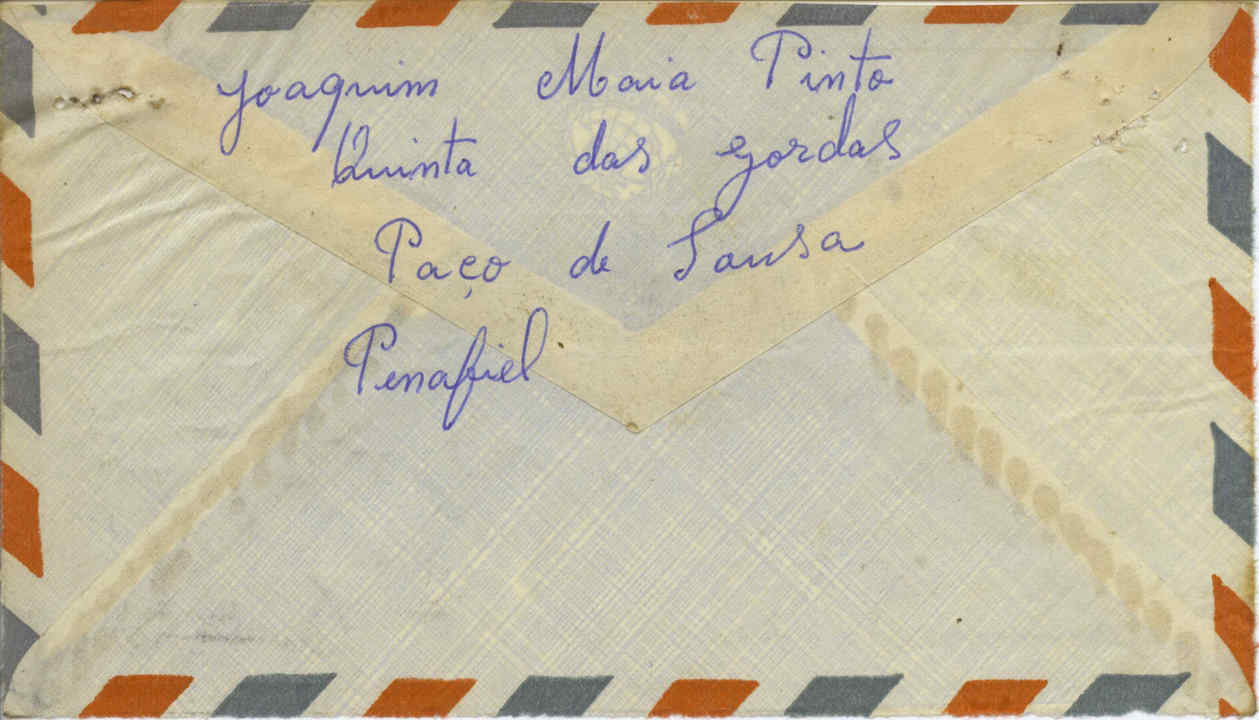 Joaquim Maia Pinto
Quinta das Gordas
Paço de Sousa
Penafiel